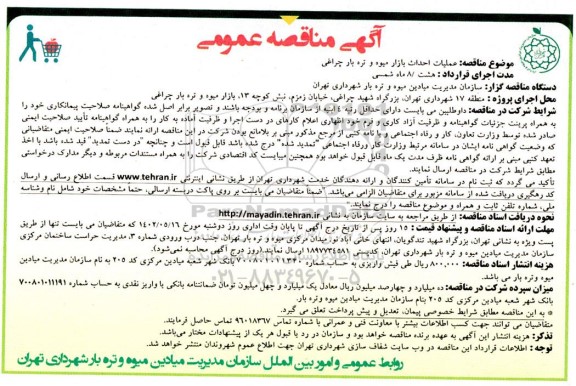 آگهی مناقصه عمومی
موضوع مناقصه: عملیات احداث بازار میوه و تره بار چراغی
مدت اجرای قرارداد: هشت /۸ ماه شمسی
دستگاه مناقصه گزار: سازمان مدیریت میادین میوه و تره بار شهرداری تهران
محل اجرای پروژه: منطقه ۱۷ شهرداری تهران، بزرگراه شهید چراغی، خیابان زمزم، نبش کوچه ۱۳، بازار میوه و تره بار چراغی
شرایط شرکت در مناقصه: داوطلبین می بایست دارای حداقل رتبه ۴ ابنیه از سازمان برنامه و بودجه باشند و تصویر برابر اصل شده گواهینامه صلاحیت پیمانکاری خود را
به همراه پرینت جزئیات گواهینامه و ظرفیت آزاد کاری و فرم خود اظهاری اعلام کارهای در دست اجرا و ظرفیت آماده به کار را به همراه گواهینامه تأیید صلاحیت ایمنی
صادر شده توسط وزارت تعاون، کار و رفاه اجتماعی و یا نامه کتبی از مرجع مذکور مبنی بر بلامانع بودن شرکت در این مناقصه ارائه نمایند ضمناً صلاحیت ایمنی متقاضیانی
که وضعیت گواهی نامه ایشان در سامانه مرتبط وزارت کار ورفاه اجتماعی "تمدید شده" درج شده باشد قابل قبول است و چنانچه "در دست تمدید" قید شده باشد با اخذ
تعهد کتبی مبنی بر ارائه گواهی نامه ظرف مدت یک ماه قابل قبول خواهد بود همچنین میبایست کد اقتصادی شرکت را به همراه مستندات مربوطه و دیگر مدارک درخواستی
مطابق شرایط شرکت در مناقصه ارسال نمایند.
تأکید می گردد که ثبت نام در سامانه تأمین کنندگان و ارائه دهندگان خدمت شهرداری تهران از طریق نشانی اینترنتی www.tehran.ir قسمت اطلاع رسانی و ارسال
کد رهگیری دریافت شده از سامانه مزبور برای متقاضیان الزامی می‌باشد. "ضمناً متقاضیان می بایست بر روی پاکت دربسته ارسالی، حتماً مشخصات خود شامل نام وشناسه
ملی، شماره تلفن ثابت و همراه و موضوع مناقصه را درج نمایند.
نحوه دریافت اسناد مناقصه: از طریق مراجعه به سایت سازمان به نشانی http://mayadin.tehran.ir
مهلت ارائه اسناد مناقصه و پیشنهاد قیمت: ۱۵ روز پس از تاریخ درج آگهی تا پایان وقت اداری روز دوشنبه مورخ ۱۴۰۲/۰۵/۱۶ که متقاضیان می بایست تنها از طریق
پست ویژه به نشانی تهران، بزرگراه شهید تندگویان، انتهای خانی آباد نو، میدان مرکزی میوه و تره بار تهران، جنب درب ورودی شماره ۳، مدیریت حراست ساختمان مرکزی
سازمان مدیریت میادین میوه و تره بار شهرداری تهران کدپستی ۱۸۹۷۷۳۴۵۸۹ ارسال نمایند(روز درج آگهی محاسبه نمی‌شود).
هزینه انتشار اسناد مناقصه: ۸۰۰،۰۰۰ ریال طی فیش واریزی به حساب شماره بانک شهر شعبه میادین مرکزی کد ۲۰۵ به نام سازمان مدیریت میادین
میوه وتره بار می باشد.
میزان سپرده شرکت در مناقصه: ده میلیارد و چهارصد میلیون ریال معادل یک میلیارد و چهل میلیون تومان ضمانتنامه بانکی یا واریز نقدی به حساب شماره ۷۰۰۸۰۱۰۱۱۱۹۱
بانک شهر شعبه میادین مرکزی کد ۲۰۵ بنام سازمان مدیریت میادین میوه وتره بار.
* به این مناقصه مطابق شرایط خصوصی پیمان، تعدیل و پیش پرداخت تعلق می گیرد.
متقاضیان می توانند جهت کسب اطلاعات بیشتر با معاونت فنی و عمرانی با شماره تماس ۹۶۰۱۸۳۶۷ تماس حاصل فرمایند.
تذکر: هزینه انتشار این آگهی به عهده برنده مناقصه خواهد بود و سازمان در رد یا قبول هر یک از پیشنهادات مختار می‌باشد.
توجه: اطلاعات قرارداد این مناقصه در وب سایت شفاف سازی شهرداری تهران جهت اطلاع عموم شهروندان منتشر خواهد شد.
روابط عمومی و امور بین الملل سازمان مدیریت میادین میوه و تره بار شهرداری تهران
۰۲۱-۸۸۳۴۹۶۷۰-۵